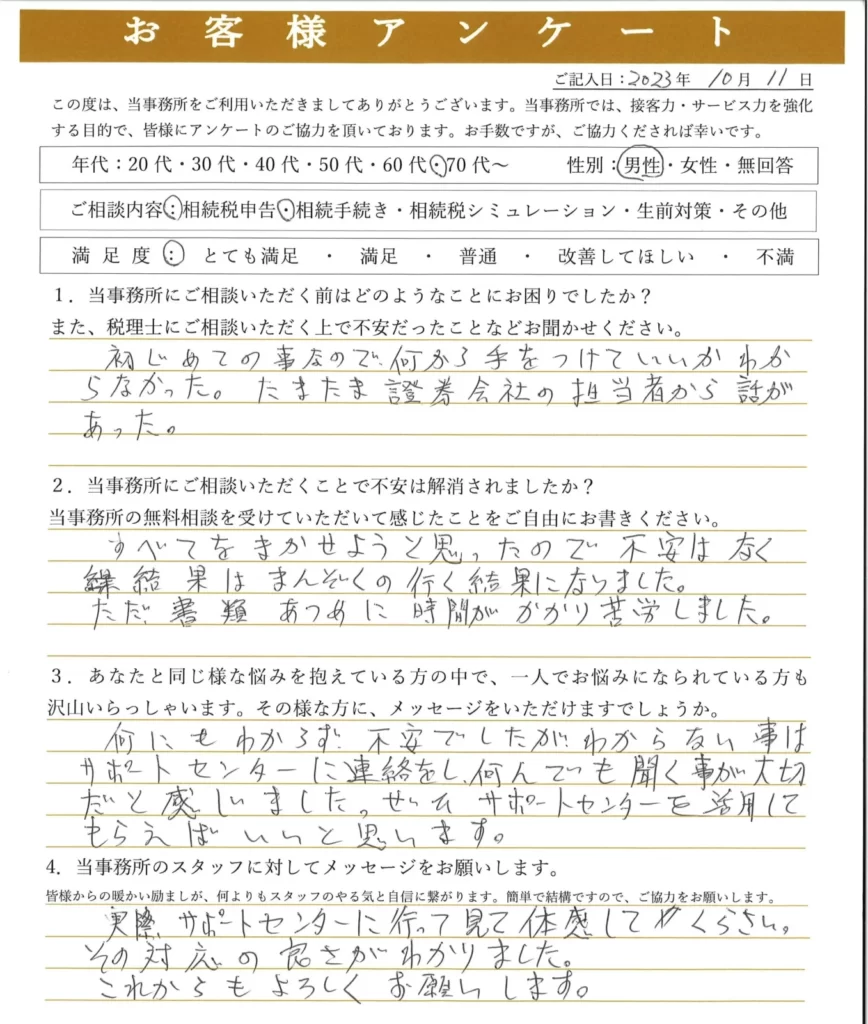 お客様アンケート
ご記入日：2023年 10月 11日
この度は、当事務所をご利用いただきましてありがとうございます。当事務所では、接客力・サービス力を強化
する目的で、皆様にアンケートのご協力を頂いております。お手数ですが、ご協力くだされば幸いです。
年代：20代・30代・40代・50代・60代・70代～　性別：男性・女性・無回答
ご相談内容：相続税申告・相続手続き・相続税シミュレーション・生前対策・その他
満足度：とても満足　・　満足　・　普通　・　改善してほしい　・　不満
１．当事務所にご相談いただく前はどのようなことにお困りでしたか？
また、税理士にご相談いただく上で不安だったことなどお聞かせください。
初じめての事なので、何から手をつけていいかわか
らなかった。たまたま證券会社の担当者から話が
あった。
２．当事務所にご相談いただくことで不安は解消されましたか？
当事務所の無料相談を受けていただいて感じたことをご自由にお書きください。
すべてをまかせようと思ったので不安はなく
結果はまんぞくの行く結果になりました。
ただ、書類あつめに時間がかかり苦労しました。
３．あなたと同じ様な悩みを抱えている方の中で、一人でお悩みになられている方も
沢山いらっしゃいます。その様な方に、メッセージをいただけますでしょうか。
何にもわからず、不安でしたが、わからない事は
サポートセンターに連絡をし、何んでも聞く事が大切
だと感じました。ぜひサポートセンターを活用して
もらえばいいと思います。
４．当事務所のスタッフに対してメッセージをお願いします。
皆様からの暖かい励ましが、何よりもスタッフのやる気と自信に繋がります。簡単で結構ですので、ご協力をお願いします。
実際サポートセンターに行って見て体感してくらさい。
その対応の良さがわかりました。
これからもよろしくお願いします。